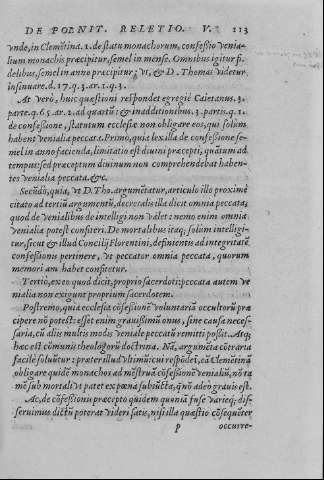 DE POENIT. RELETIO. V. 113
vnde, in Clemẽtina. 1. de statu monachorum, confessio venia-
lium monachis præcipitur, semel in mense. Omnibus igitur fi
delibus, semel in anno præcipitur; vt, & D. Thomas videtur
insinuare. d. 17. q. 3. ar. 1. q. 3.
At verò, huic quæstioni respondet egregiè Caietanus. 3.
parte. q. 65. ar. 2. ad quartũ: & in additionibus. 3. partis. q. 1.
de confessione, statutum ecclesiæ non obligare eos, qui solùm
habent venialia peccata. Primò, quia lex illa de confessione se-
mel in anno facienda, limitatio est diuini præcepti, quãtum ad
tempus: sed præceptum diuinum non comprehendebat haben-
tes venialia peccata. &c.
Secũdò, quia, vt D. Tho. argumẽtatur, articulo illo proximè
citato ad tertiũ argumentũ, decretalis illa dicit omnia peccata;
quod de venialibus de intelligi non valet: nemo enim omnia
venialia potest confiteri. De mortalibus itaq; solùm intelligi-
tur, sicut & illud Concilij Florentini, definientis ad integritatẽ
confessionis pertinere, vt peccator omnia peccata, quorum
memoriam habet confitetur.
Tertiò, ex eo quod dicit, proprio sacerdoti: peccata autem ve
nialia non exigunt proprium sacerdotem.
Postremò, quia ecclesia cõfessionẽ voluntariã occultorũ præ
cipere nõ potest: esset enim grauissimũ onus, sine causa neces-
saria, cũ alijs multis modis veniale peccatũ remitti possit. Atq;
hæc est cõmunis theologorũ doctrina. Nã, argumẽta cõtraria
facilè soluũtur: præter illud vltimũ: cui respõdet, cũ Clemẽtinã
obligare quidẽ monachos ad mẽstruã cõfessionẽ venialiũ, nõ ta
mẽ sub mortali vt patet ex pœna subiũcta, q̃ nõ adeò grauis est.
Ac, de cõfessionis præcepto quidem quoniã fusè varieq; dis-
seruimus dictũ poterat videri satis, nisi illa quæstio cõsequẽter
P occurre-